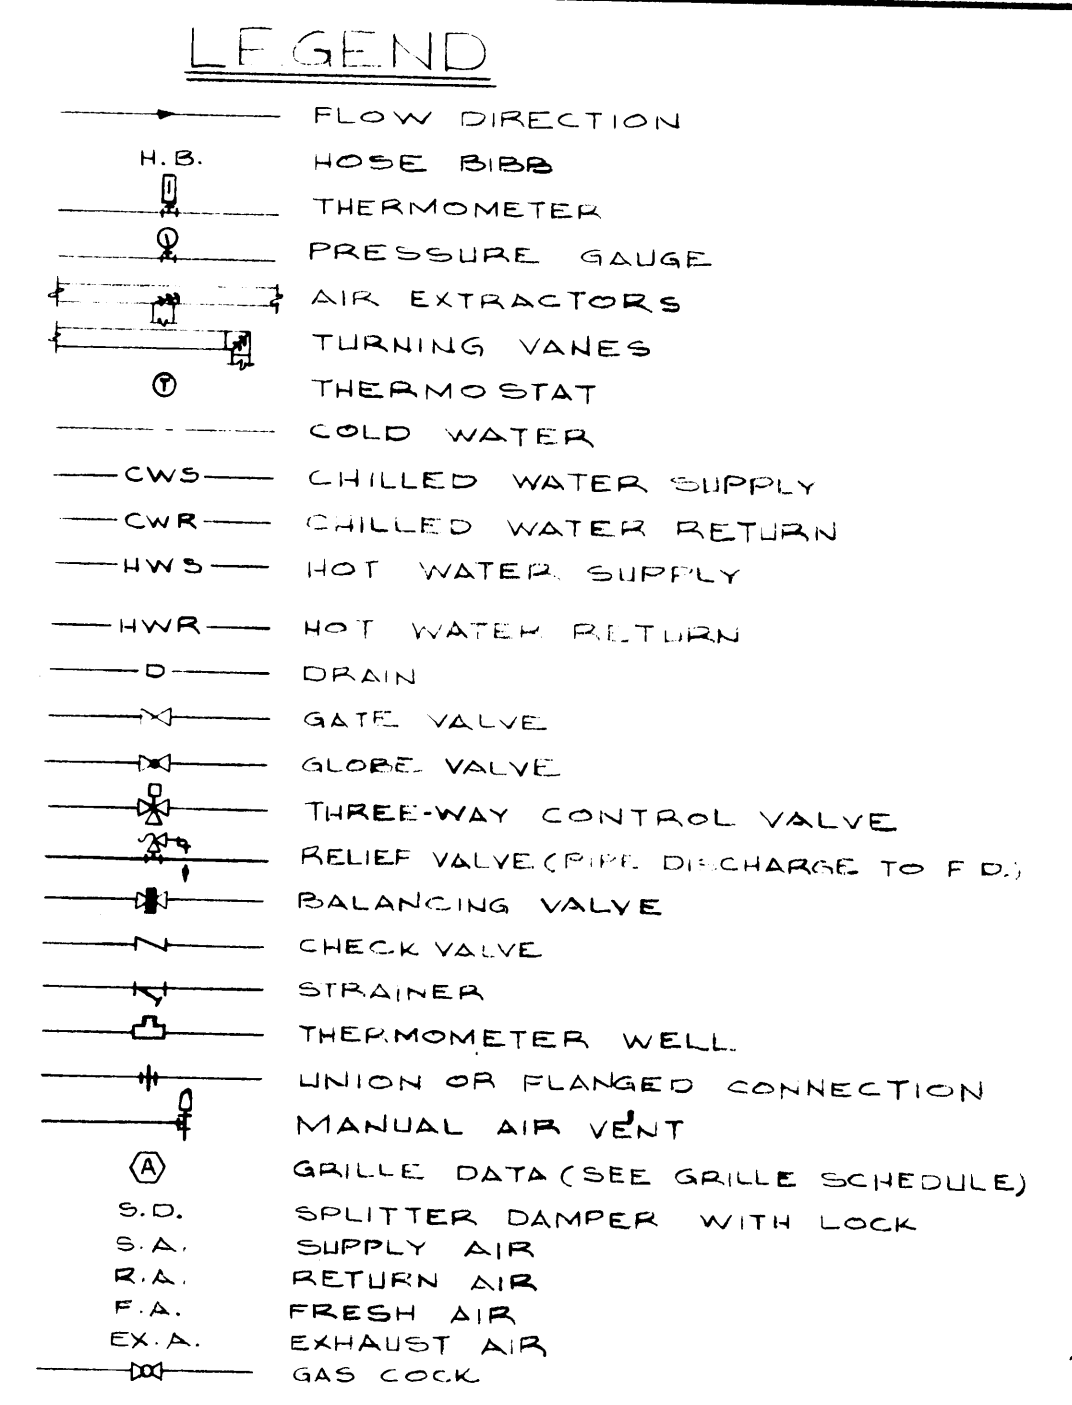 LEGEND
FLOW DIRECTION
H.B. HOSE BIBB
THERMOMETER
PRESSURE GAUGE
AIR EXTRACTORS
TURNING VANES
T THERMOSTAT
COLD WATER
CWS CHILLED WATER SUPPLY
CWR CHILLED WATER RETURN
HWS HOT WATER SUPPLY
HWR HOT WATER RETURN
D DRAIN
GATE VALVE
GLOBE VALVE
THREE-WAY CONTROL VALVE
RELIEF VALVE (PIPE DISCHARGE TO F.D.)
BALANCING VALVE
CHECK VALVE
STRAINER
THERMOMETER WELL
UNION OR FLANGED CONNECTION
MANUAL AIR VENT
A GRILLE DATA (SEE GRILLE SCHEDULE)
S.D. SPLITTER DAMPER WITH LOCK
S.A. SUPPLY AIR
R.A. RETURN AIR
F.A. FRESH AIR
EX.A. EXHAUST AIR
GAS COCK